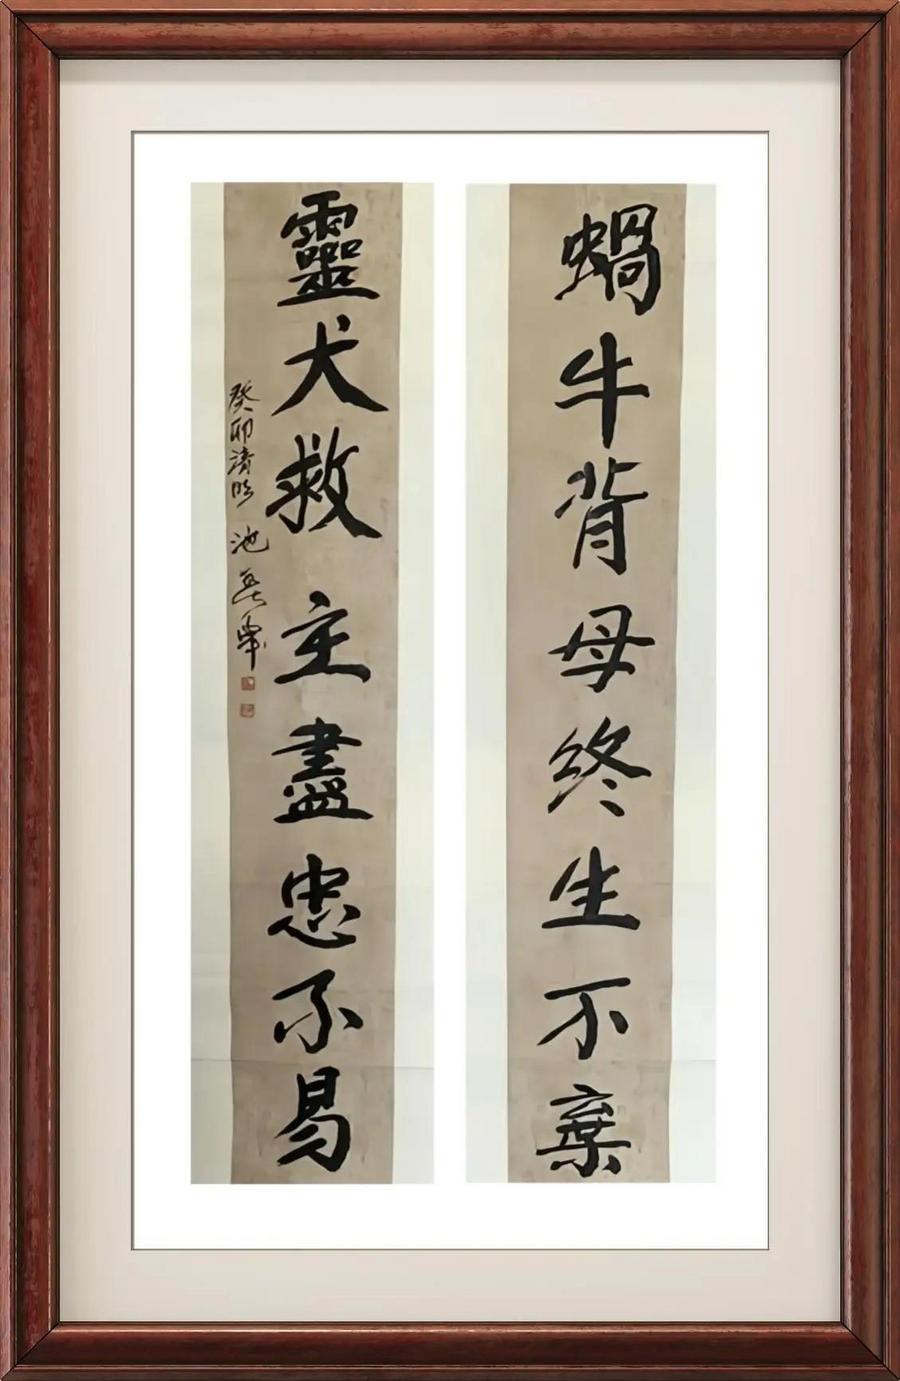 蝸牛背母終生不棄
靈犬救主盡忠不易
癸卯清明 池